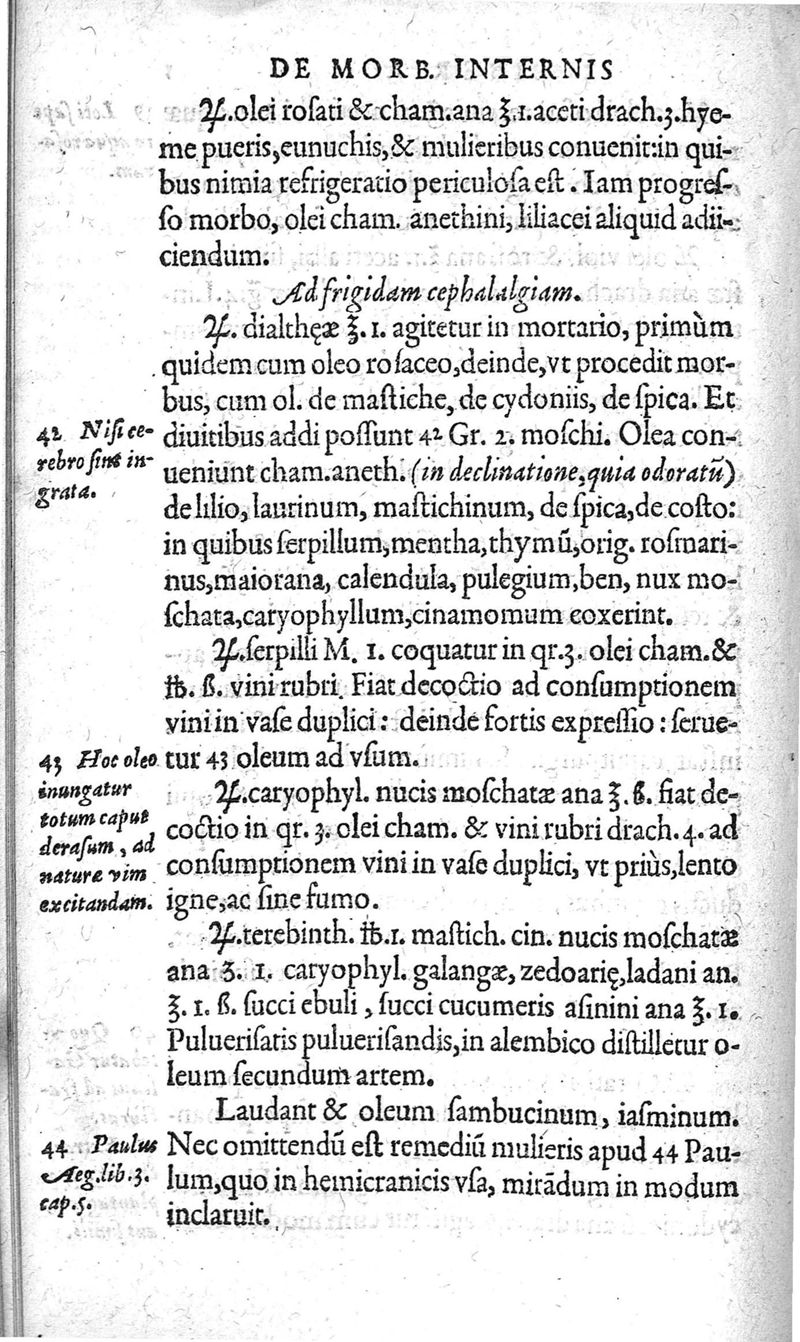 DE MORB. INTERNIS
℞.olei roſati & cham.ana ℥.1.aceti drach.3.hye-
me pueris,eunuchis,& mulieribus conuenit:in qui-
bus nimia refrigeratio periculoſa eſt. Iam progreſ-
ſo morbo, olei cham. anethini, liliacei aliquid adii-
ciendum.
Ad frigidam cephalalgiam.
℞. dialthęæ ℥.1. agitetur in mortario, primùm
quidem cum oleo roſaceo,deinde,vt procedit mor-
bus, cum ol. de maſtiche, de cydoniis, de ſpica. Et
diuitibus addi poſſunt 42 Gr. 2. moſchi. Olea con-
ueniunt cham.aneth.(in declinatione,quia odoratū)
de lilio, laurinum, maſtichinum, de ſpica,de coſto:
in quibus ſerpillum,mentha,thymū,orig. roſmari-
nus,maiorana, calendula, pulegium,ben, nux mo-
ſchata,caryophyllum,cinamomum coxerint.
℞.ſerpilli M. 1. coquatur in qr.3. olei cham.&
℔. ß. vini rubri. Fiat decoctio ad conſumptionem
vini in vaſe duplici: deinde fortis expreſſio: ſerue-
tur 43 oleum ad vſum.
℞.caryophyl. nucis moſchatæ ana ℥.ß. fiat de-
coctio in qr. 3. olei cham. & vini rubri drach.4. ad
conſumptionem vini in vaſe duplici, vt priùs,lento
igne,ac ſine fumo.
℞.terebinth. ℔.1. maſtich. cin. nucis moſchatæ
ana ʒ. 1. caryophyl. galangæ, zedoarię,ladani an.
℥.1.ß. ſucci ebuli, ſucci cucumeris aſinini ana ℥.1.
Pulueriſatis pulueriſandis,in alembico diſtilletur o-
leum ſecundum artem.
Laudant & oleum ſambucinum, iaſminum.
Nec omittendū eſt remediū mulieris apud 44 Pau-
lum,quo in hemicranicis vſa, mirādum in modum
inclaruit.
42 Niſi ce-
rebro ſint in-
grata.
43 Hoc oleo
inungatur
totum caput
deraſum, ad
naturæ vim
excitandam.
44 Paulus
Aeg.lib.3.
cap.5.